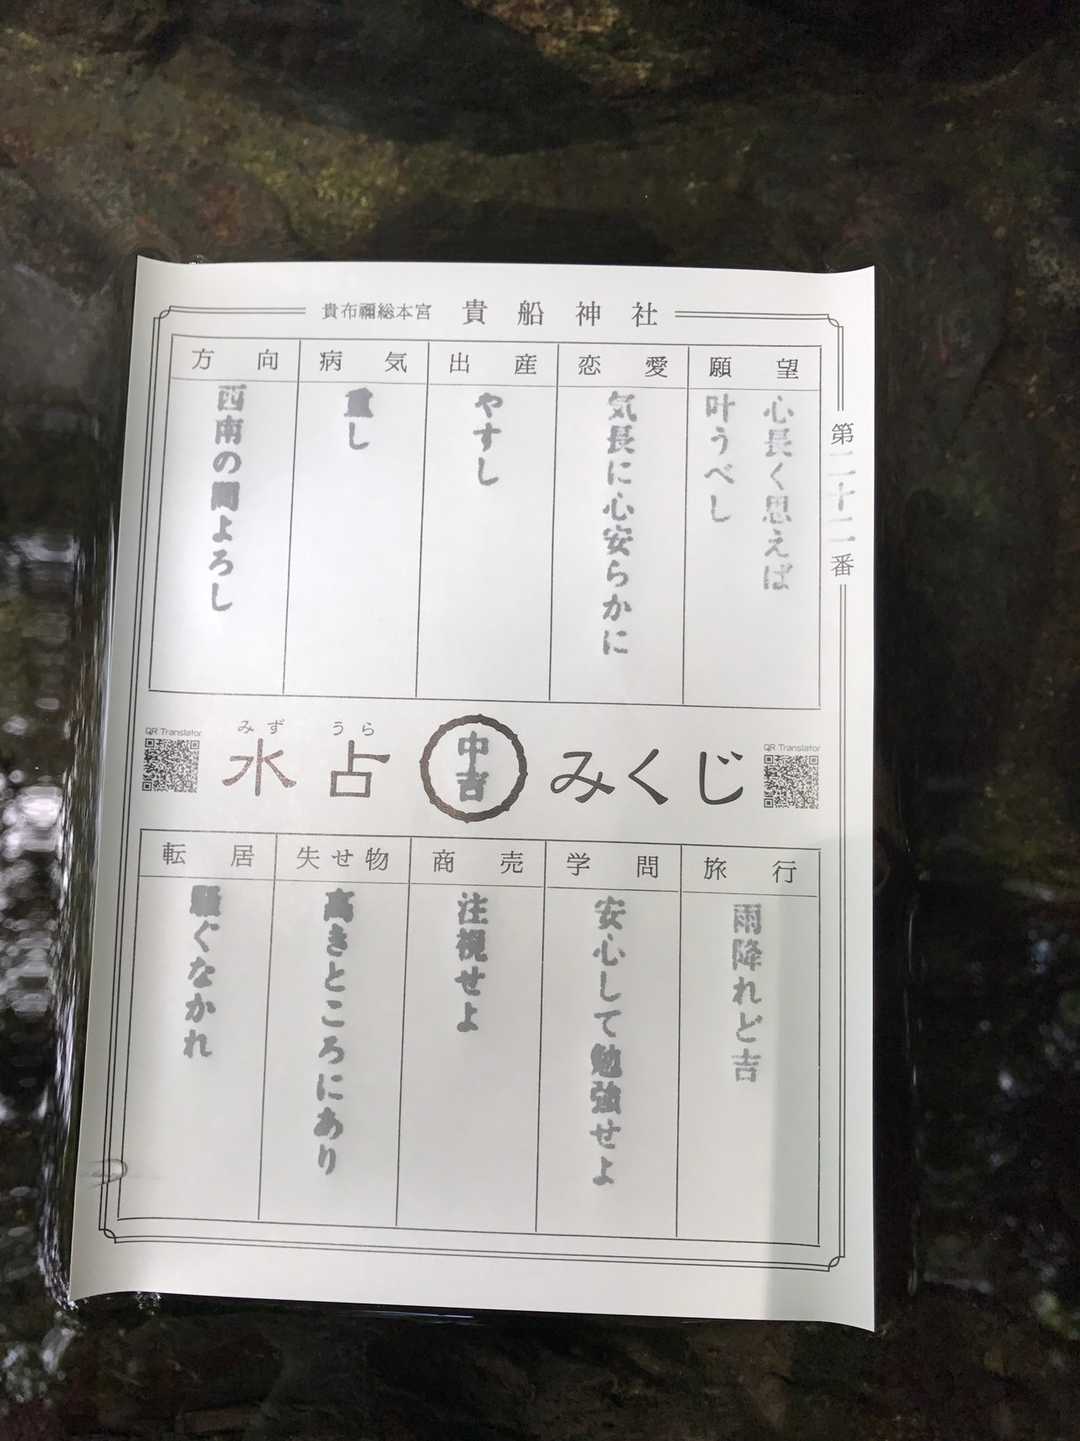 貴布禰総本宮 貴船神社
第二十二番
願望
心長く思えば
叶うべし
恋愛
気長に心安らかに
出産
やすし
病気
重し
方向
西南の間よろし
QR Translator
みず うら
水占 中吉 みくじ
QR Translator
旅行
雨降れど吉
学問
安心して勉強せよ
商売
注視せよ
失せ物
高きところにあり
転居
騒ぐなかれ